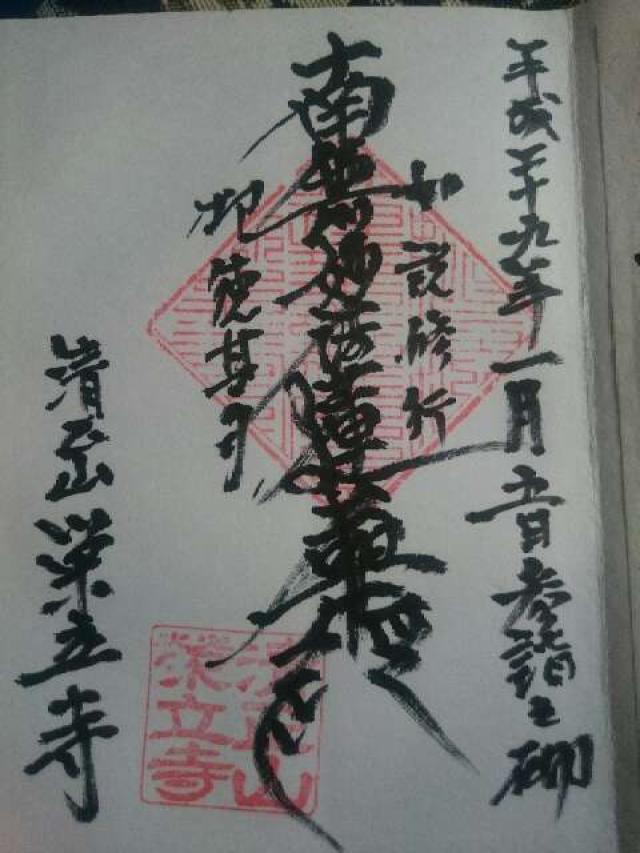 平成二十九年一月五日参詣之砌
如説修行
南無妙法蓮華経
抑徳甚多
清正山栄立寺
清正山
栄立寺